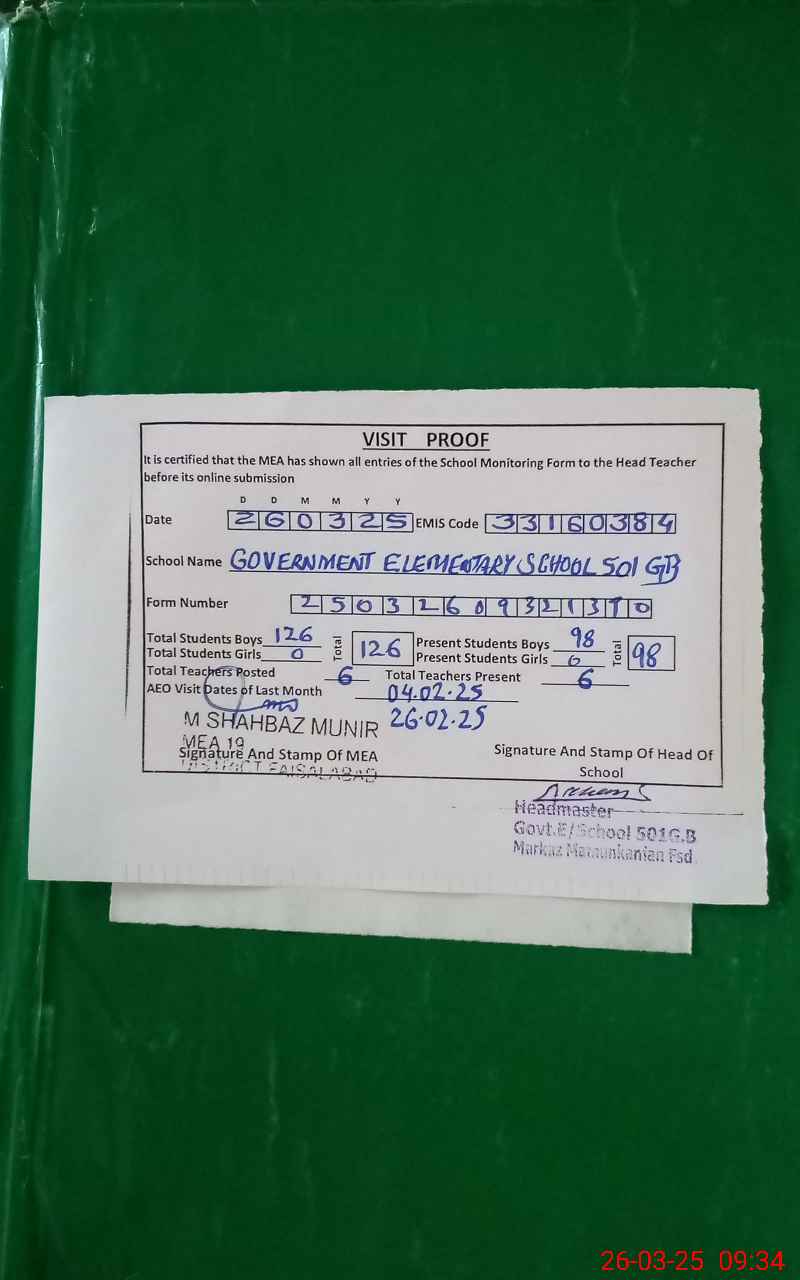 VISIT PROOF
It is certified that the MEA has shown all entries of the School Monitoring Form to the Head Teacher
before its online submission
D D M M Y Y
Date 260325 EMIS Code 33160384
School Name GOVERNMENT ELEMENTARY SCHOOL 501 GB
Form Number 2503260932
Total Students Boys 126 Total 126 Present Students Boys 98 Total 98
Total Students Girls 0 Present Students Girls 0
Total Teachers Posted 6 Total Teachers Present 6
AEO Visit Dates of Last Month 04.02.25
26.02.25
M SHAHBAZ MUNIR
MEA 19
Signature And Stamp Of MEA Signature And Stamp Of Head Of
School
DISTRICT FAISALABAD
Headmaster
Govt.E/School 501G.B
Markaz Mamunkanjan Fsd.
26-03-25 09:34